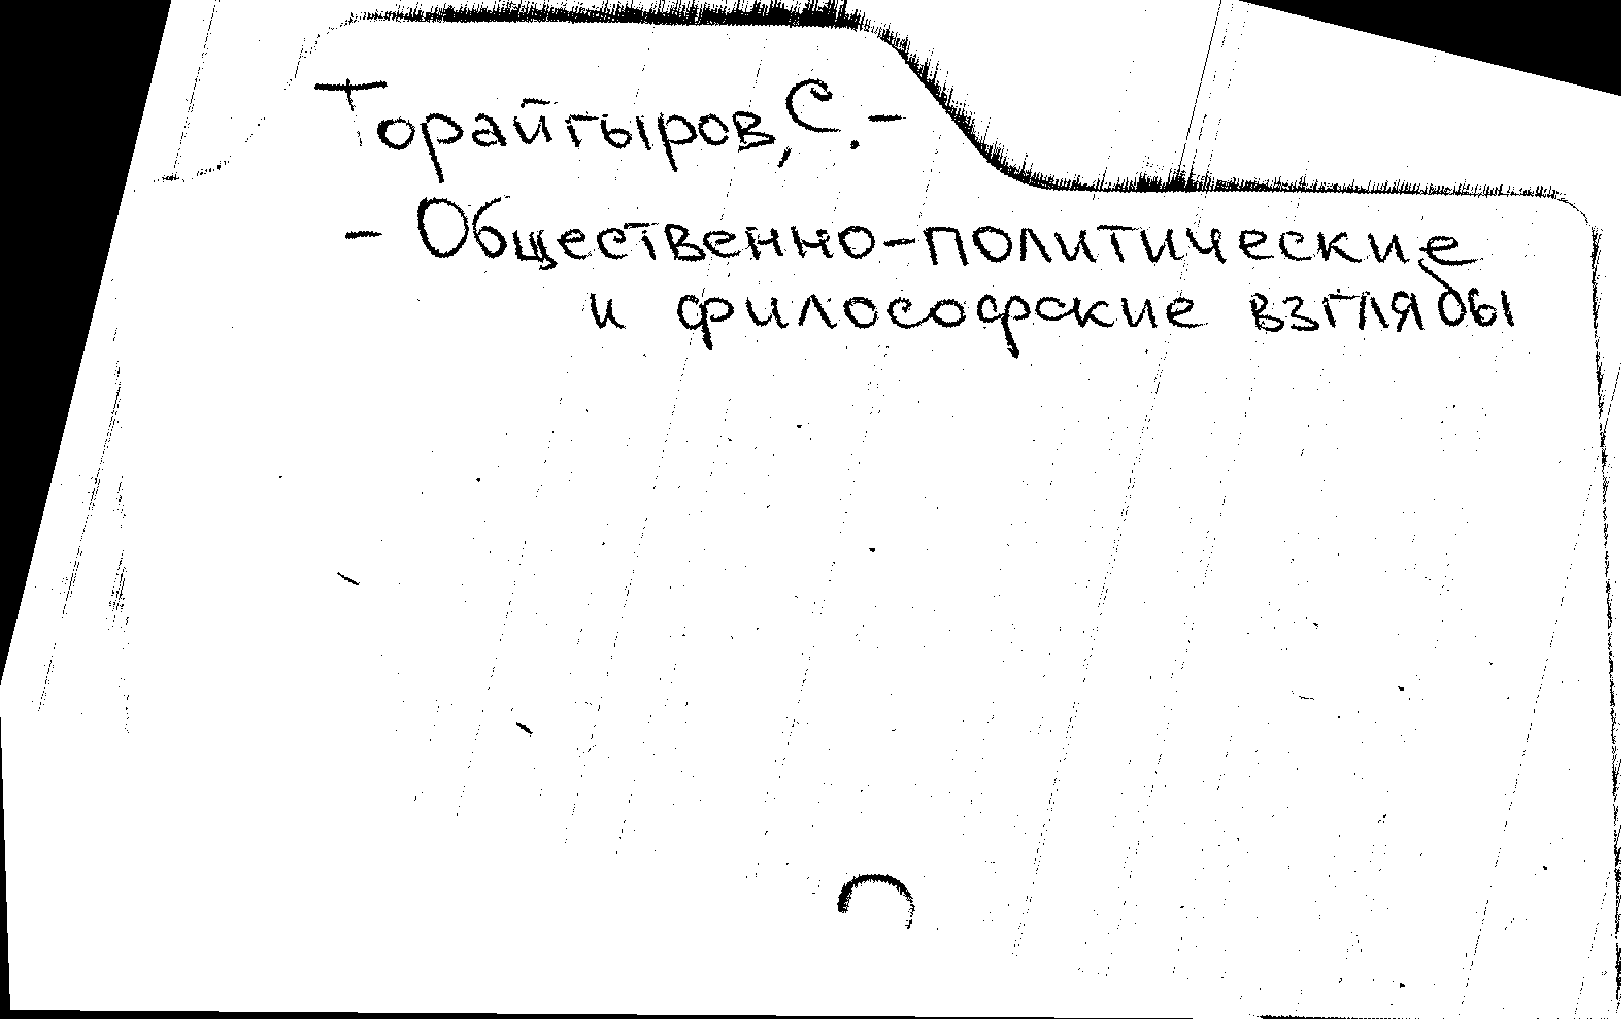 Торайгыров, С. –
– Общественно-политические
и философские взгляды